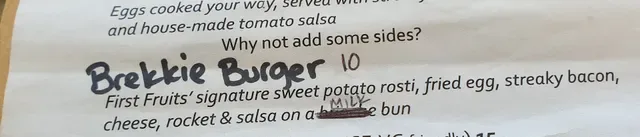 Eggs cooked your way, served with
and house-made tomato salsa
Why not add some sides?
Brekkie Burger 10
First Fruits' signature sweet potato rosti, fried egg, streaky bacon,
MILK
cheese, rocket & salsa on a bun
15